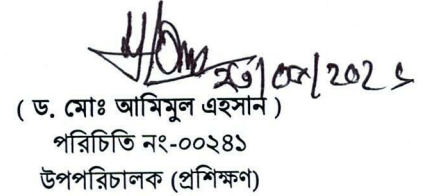 ( ড. মোঃ আমিমুল এহসান )
পরিচিতি নং-০০২৪১
উপপরিচালক (প্রশিক্ষণ)